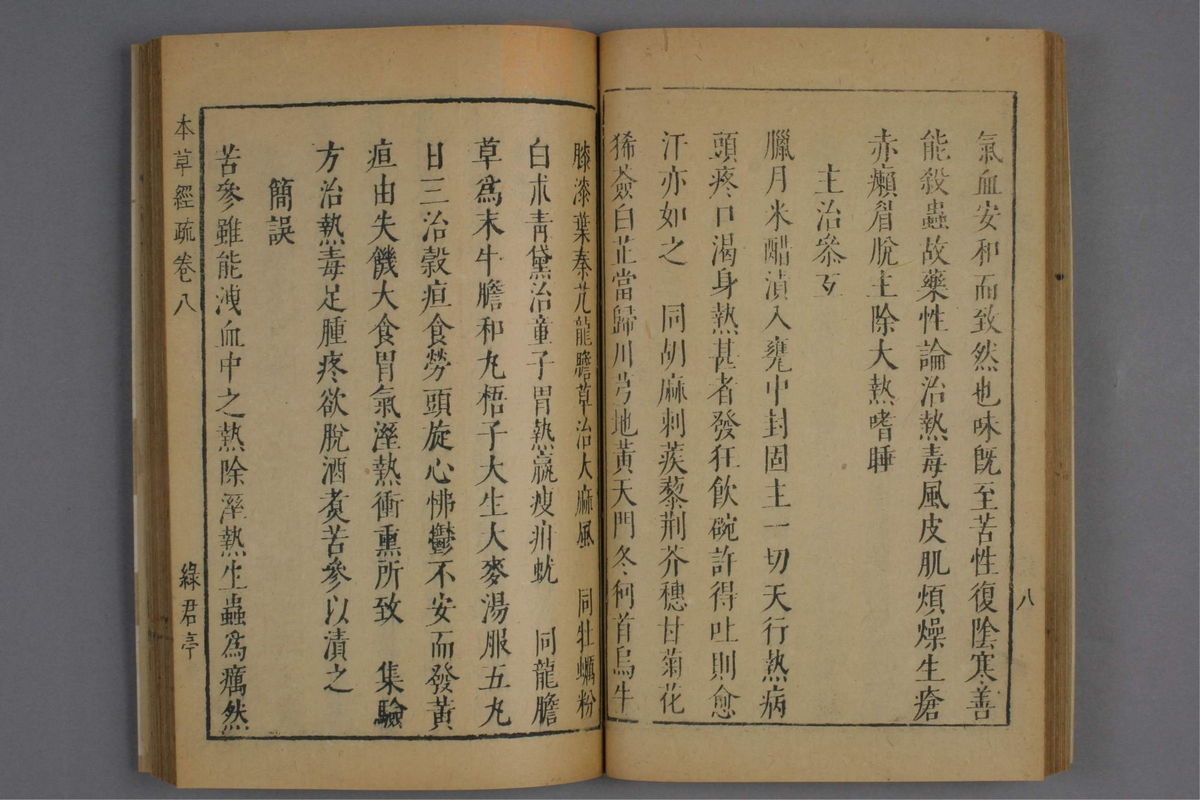 氣血安和而致然也味旣至苦性復陰寒善
能殺蟲故藥性論治熱毒風皮肌煩燥生瘡
赤癩眉脫主除大熱嗜睡
主治參互
臘月米醋漬入甕中封固主一切天行熱病
頭疼口渴身熱甚者發狂飲碗許得吐則愈
汗亦如之　同胡麻刺蒺藜荆芥穗甘菊花
豨薟白芷當歸川芎地黃天門冬何首烏牛
八
膝漆葉秦艽龍膽草治大麻風　同牡蠣粉
白朮青黛治童子胃熱羸瘦疳蚘　同龍膽
草爲末牛膽和丸梧子大生大麥湯服五丸
日三治穀疸食勞頭旋心怫鬱不安而發黃
疸由失饑大食胃氣溼熱衝熏所致　集驗
方治熱毒足腫疼欲脫酒煑苦參以漬之
簡誤
苦參雖能洩血中之熱除溼熱生蟲爲癘然
本草經疏卷八
綠君亭